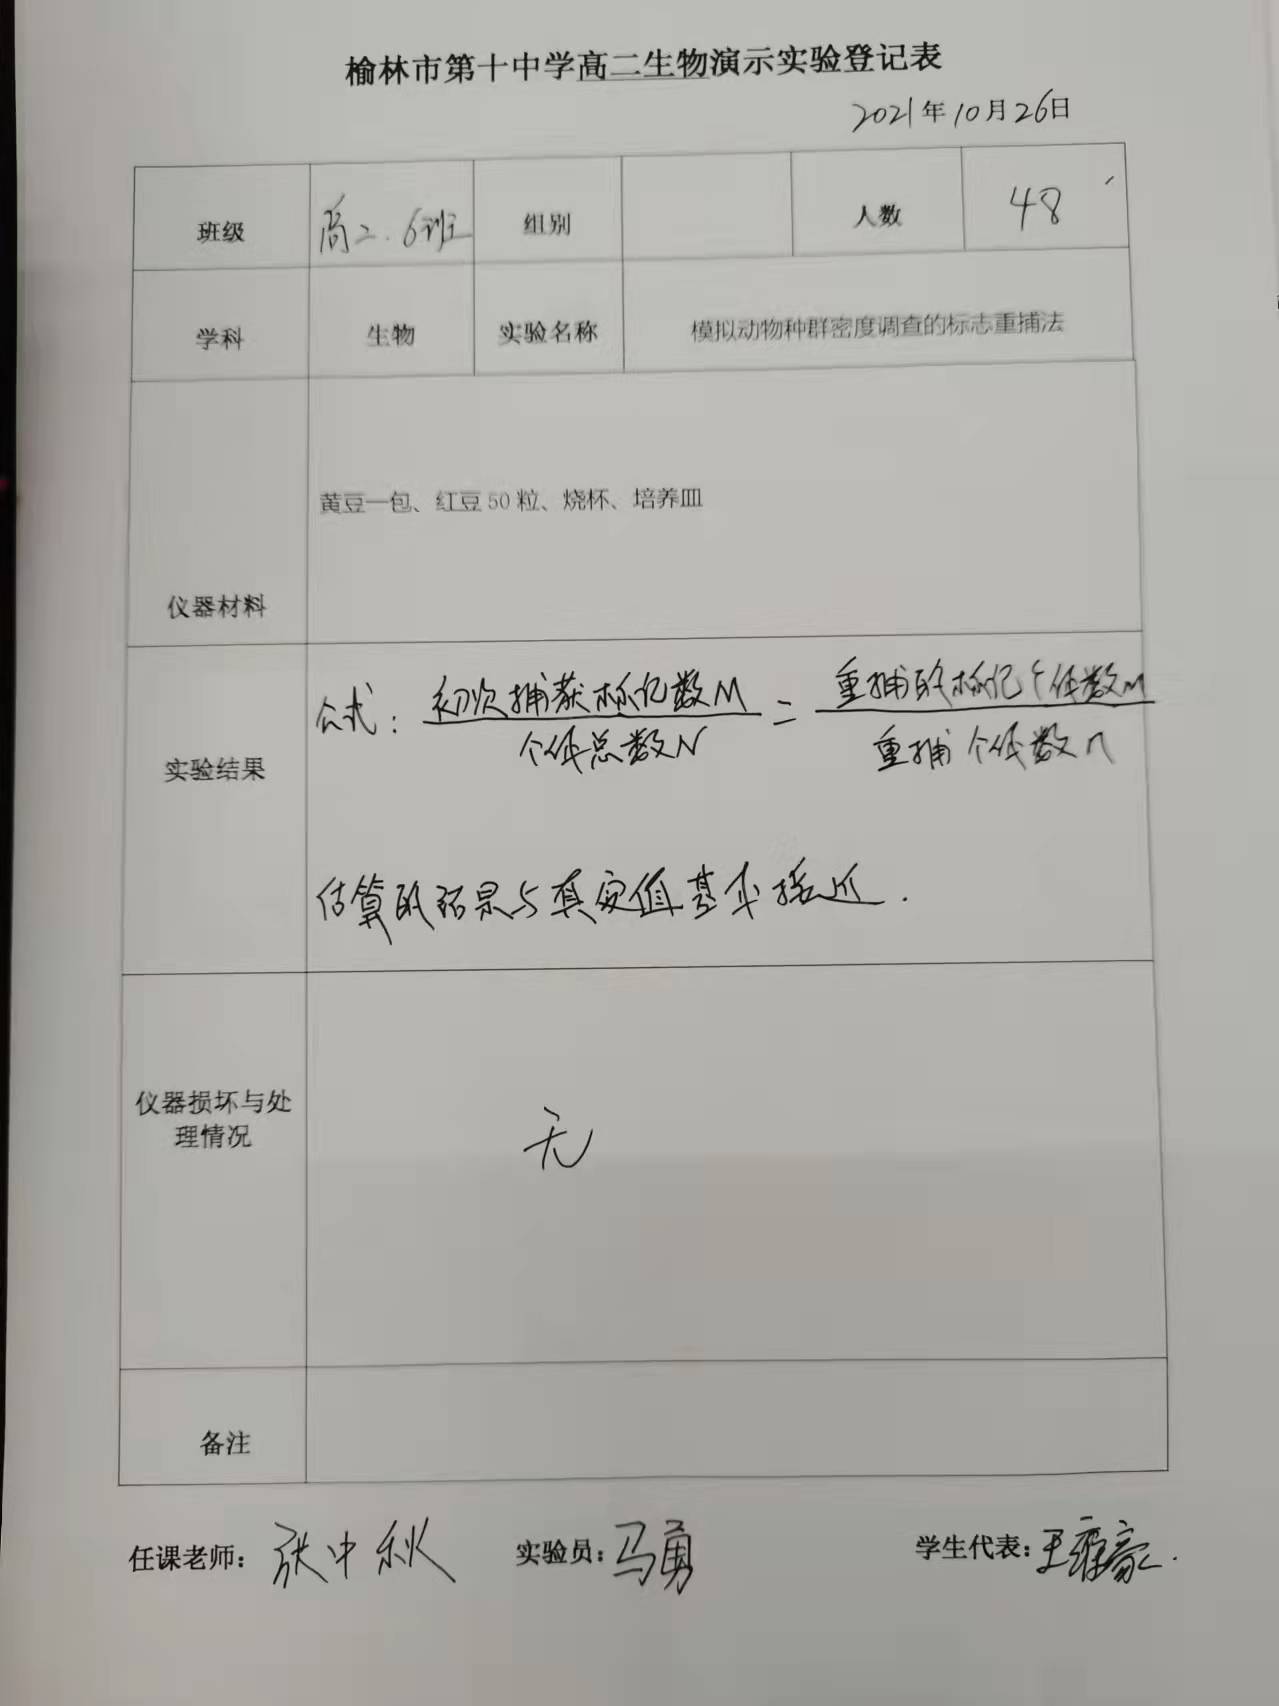 榆林市第十中学高二生物演示实验登记表
2021年10月26日
班级 高二.6班 组别 人数 48
学科 生物 实验名称 模拟动物种群密度调查的标志重捕法
黄豆一包、红豆50粒、烧杯、培养皿
仪器材料
公式: 初次捕获标记数M = 重捕的标记个体数m
个体总数N 重捕个体数n
实验结果
估算的结果与真实值基本接近.
仪器损坏与处
理情况
无
备注
任课老师: 张中秋 实验员: 马勇 学生代表: 王雅豪.